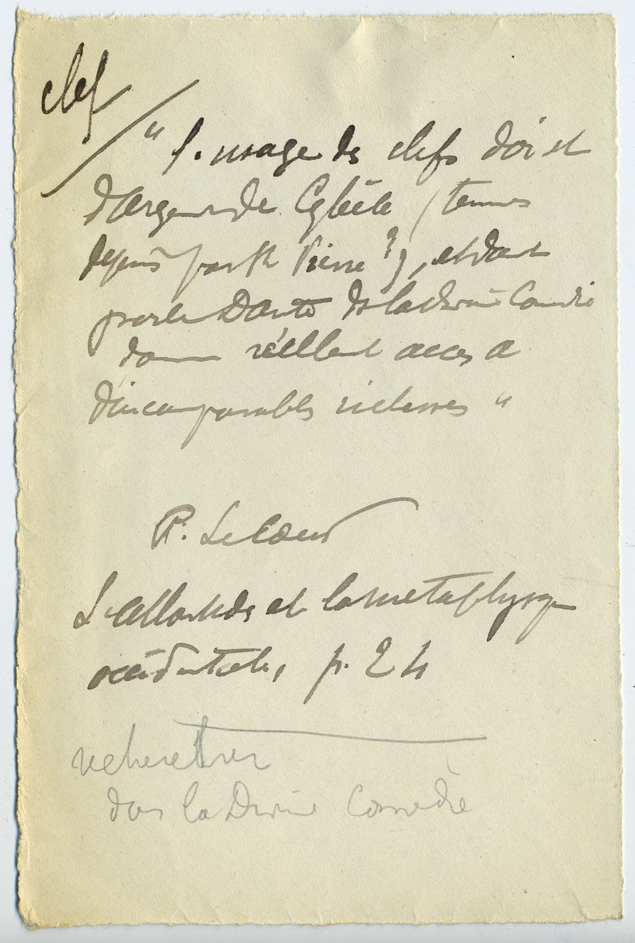 clef
" L'usage des clefs d'or et
d'argent de Cybèle (tenues
depuis par St Pierre ?), et dont
parle Dante ds la divine Comédie
donne réellemt accès à
d'incomparables richesses "
P. Le Cour
L'Atlantide et la métaphysique
occidentale, p. 24
rechercher
dans la Divine Comédie